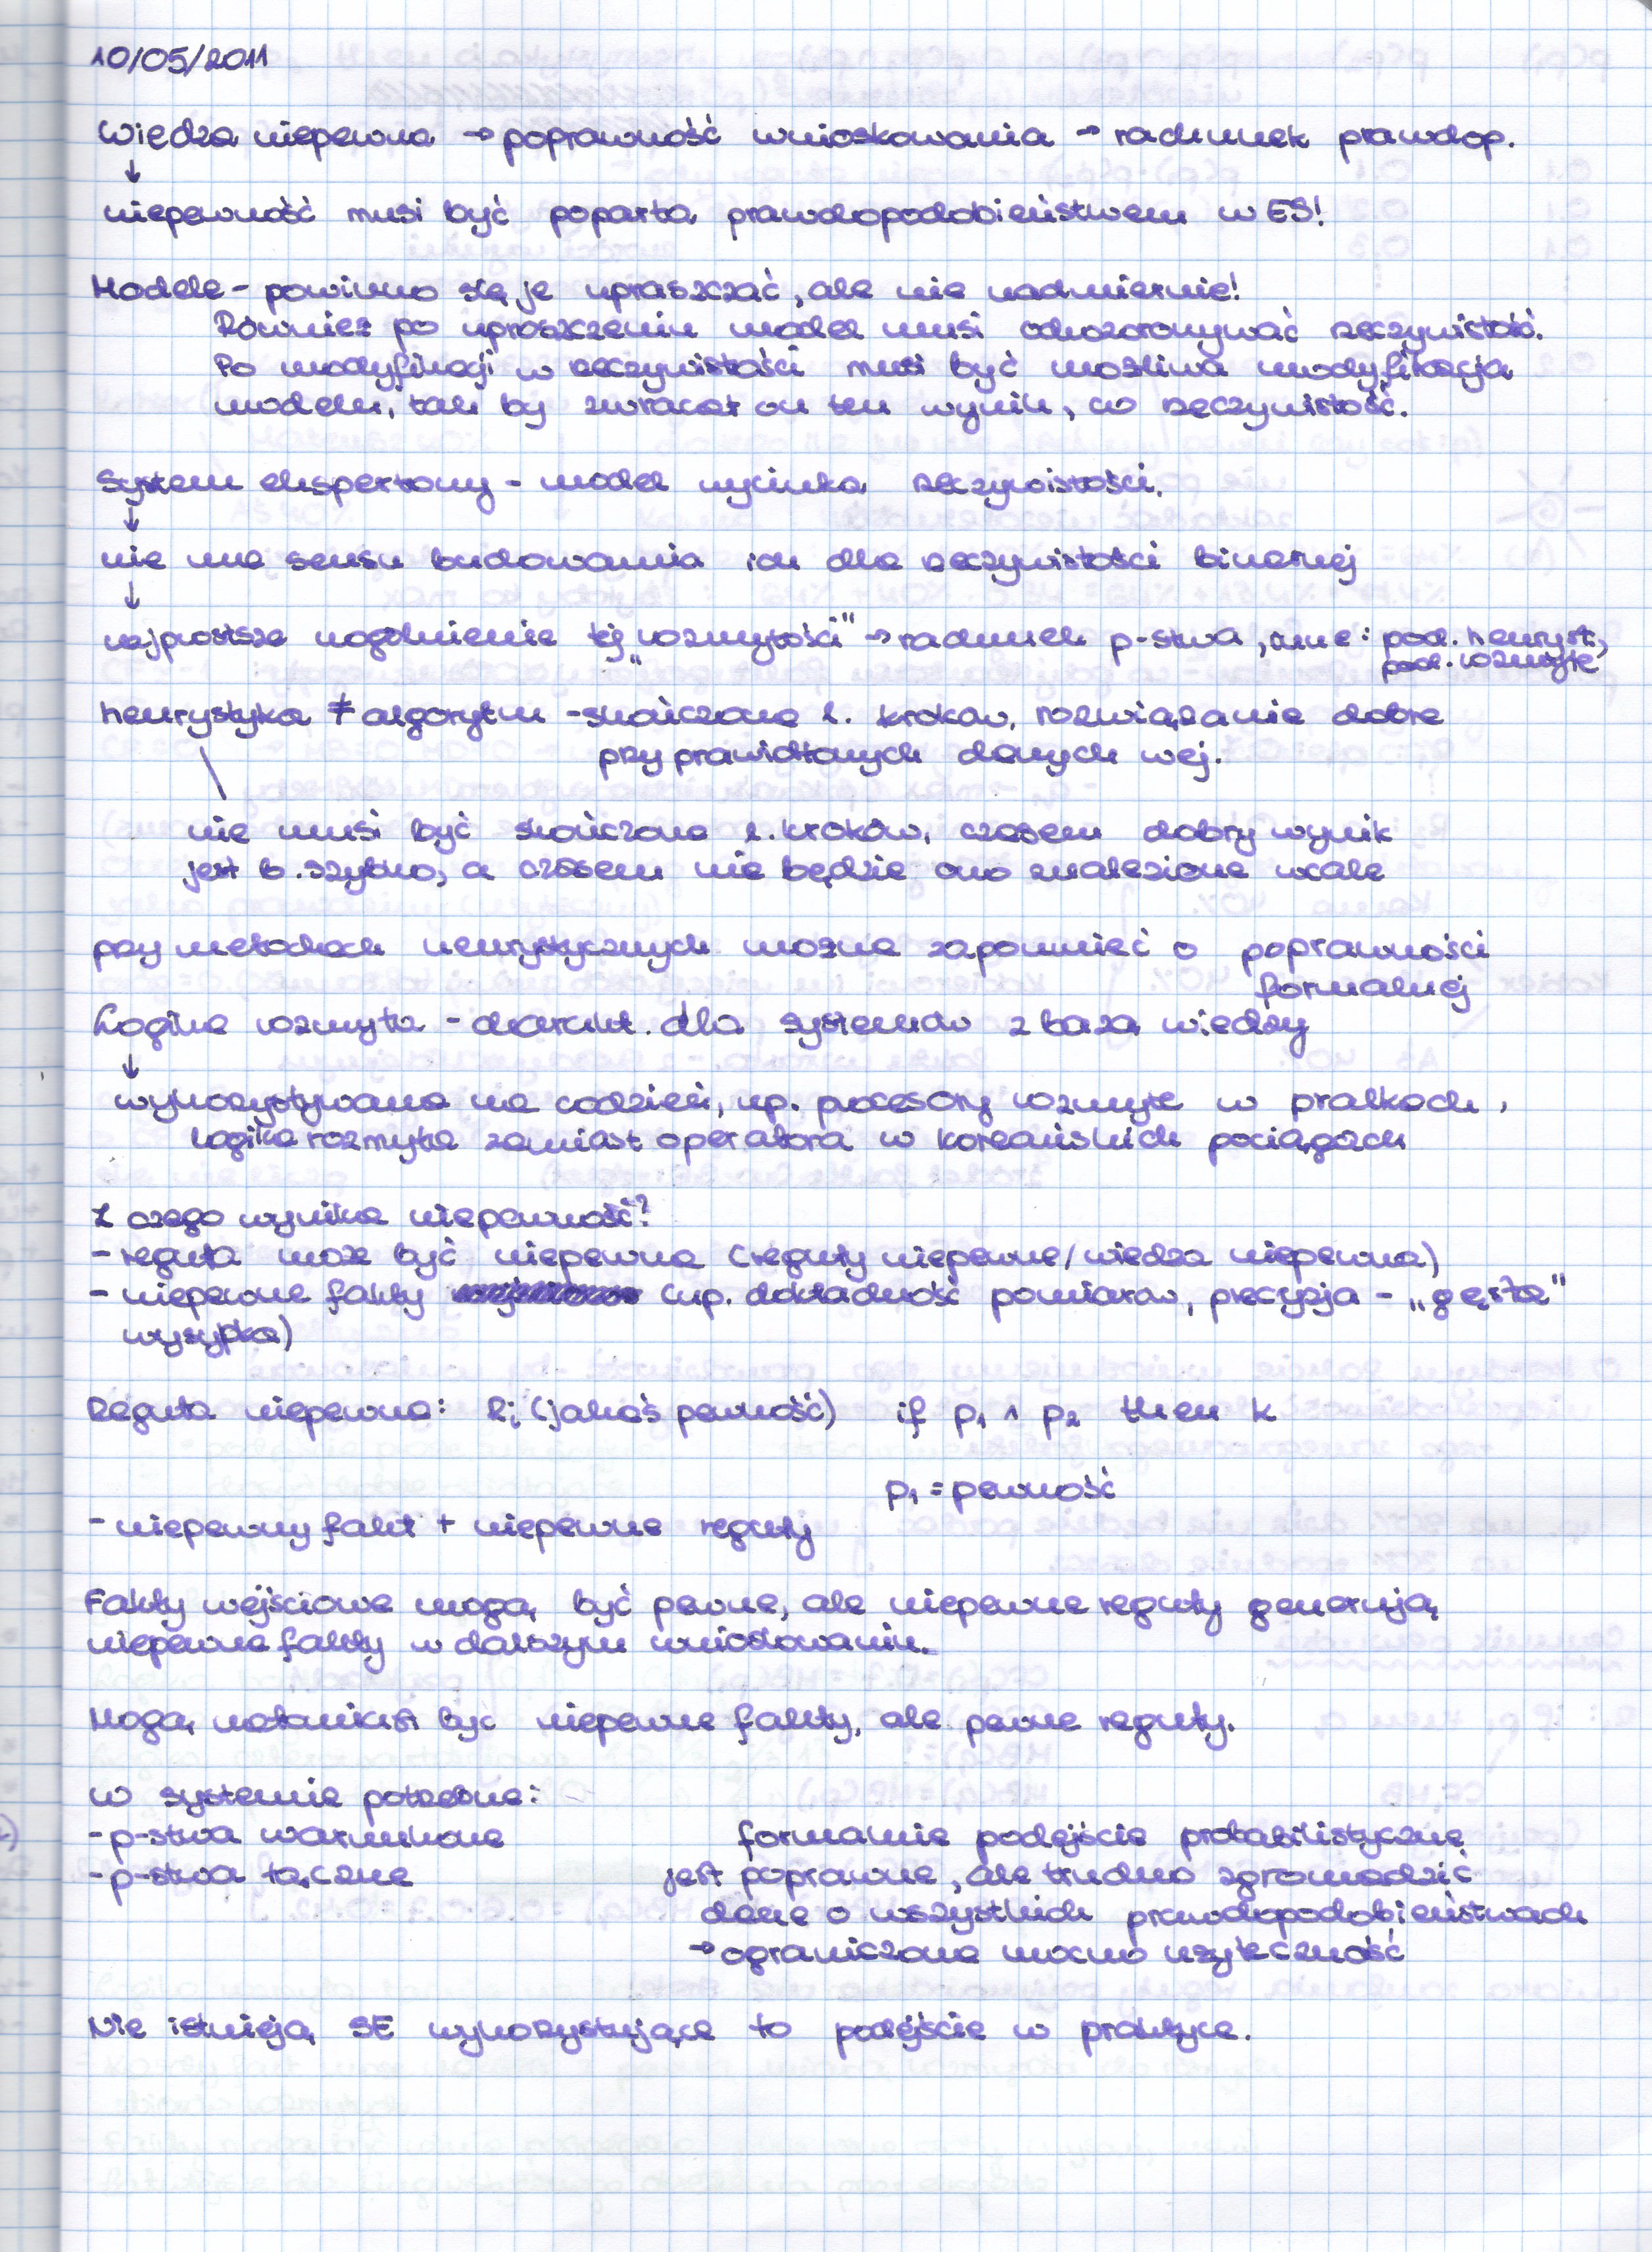 10/05/2011
Wiedza niepewna → poprawność wnioskowania → rachunek prawdop.
↓
niepewność musi być poparta prawdopodobieństwem w ES!
Modele - powinno się je upraszczać, ale nie nadmiernie!
Również po uproszczeniu model musi odwzorowywać rzeczywistość.
Po modyfikacji w rzeczywistości musi być możliwa modyfikacja
modelu, tak by zwracał on ten wynik, co rzeczywistość.
System ekspertowy - model wycinka rzeczywistości.
↓
nie ma sensu budowania ich dla rzeczywistości binarnej
↓
najprostsze uogólnienie tej „rozmytości" → rachunek p-stwa, inne: pod. heuryst.,
pod. rozmyte
heurystyka ≠ algorytm - skończona l. kroków, rozwiązanie dobre
przy prawidłowych danych wej.
nie musi być skończona l. kroków, czasem dobry wynik
jest b. szybko, a czasem nie będzie ono znalezione wcale
przy metodach heurystycznych można zapomnieć o poprawności
formalnej
Logika rozmyta - charakt. dla systemów z bazą wiedzy
↓
wykorzystywana na codzień, np. procesory rozmyte w pralkach,
logika rozmyta zamiast operatora w koreańskich pociągach
Z czego wynika niepewność?
- reguła może być niepewna (reguły niepewne/wiedza niepewna)
- niepewne fakty (np. dokładność pomiarów, precyzja - „gęsta"
wysypka)
Reguła niepewna: Ri (jakaś pewność) if p1 ∧ p2 then k
p1 = pewność
- niepewny fakt + niepewne reguły
Fakty wejściowe mogą być pewne, ale niepewne reguły generują
niepewne fakty w dalszym wnioskowaniu.
Mogą natomiast być niepewne fakty, ale pewne reguły.
W systemie potrzebne:
- p-stwa warunkowe
- p-stwa łączne
formalnie podejście probabilistyczne
jest poprawne, ale trudno zgromadzić
dane o wszystkich prawdopodobieństwach
→ ograniczona mocno użyteczność
Nie istnieją SE wykorzystujące to podejście w praktyce.